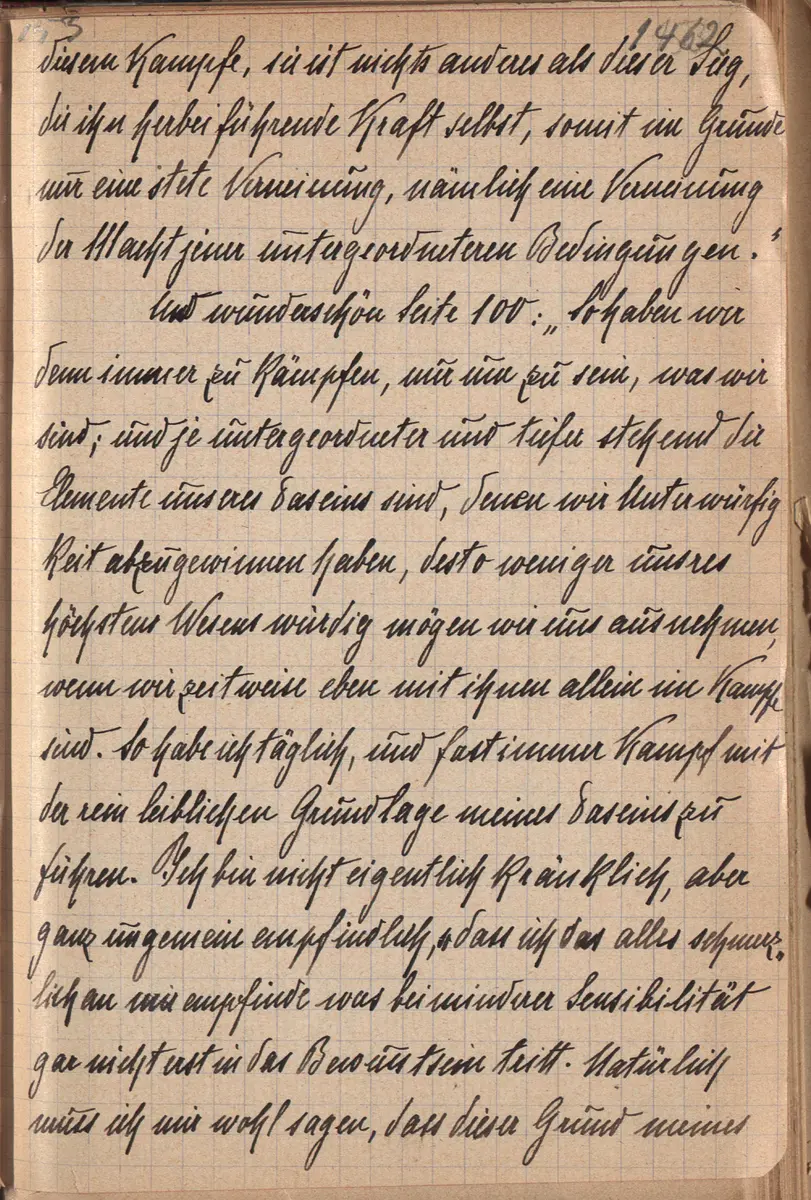 1462
diesem Kampfe, sie ist nichts anderes als dieser Sieg,
die ihn herbei führende Kraft selbst, somit im Grunde
nur eine stete Verneinung, nämlich eine Verneinung
der Macht jener untergeordneteren Bedingungen."
Und wunderschön Seite 100: „So haben wir
denn immer zu kämpfen, nur um zu sein, was wir
sind; und je untergeordneter und tiefer stehend die
Elemente unseres Daseins sind, denen wir Unterwürfig
keit abzugewinnen haben, desto weniger unsres
höchstens Wesens würdig mögen wir uns ausnehmen,
wenn wir zeitweise eben mit ihnen allein im Kampfe
sind. So habe ich täglich, und fast immer Kampf mit
der rein leiblichen Grundlage meines Daseins zu
führen. Ich bin nicht eigentlich kränklich, aber
ganz ungemein empfindlich, dass ich das alles schmerz„
lich an mir empfinde was bei minderer Sensibilität
gar nicht erst in das Bewustsein tritt. Natürlich
muss ich mir wohl sagen, dass dieser Grund meines